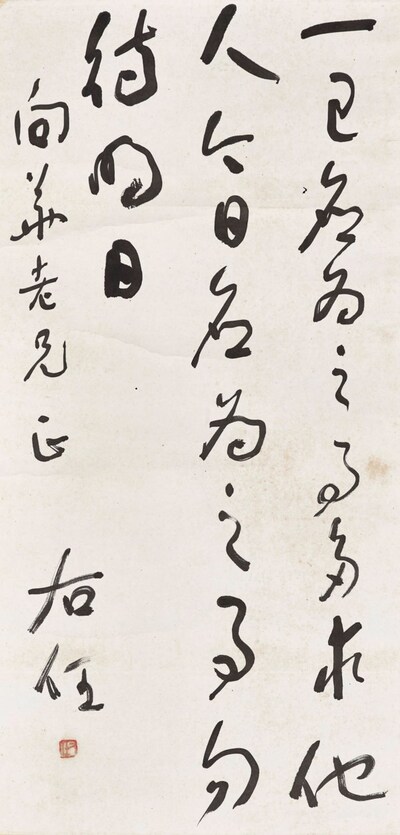 一己應為之事求他
人今日應為之事勿
待明日
向華老兄正
右任